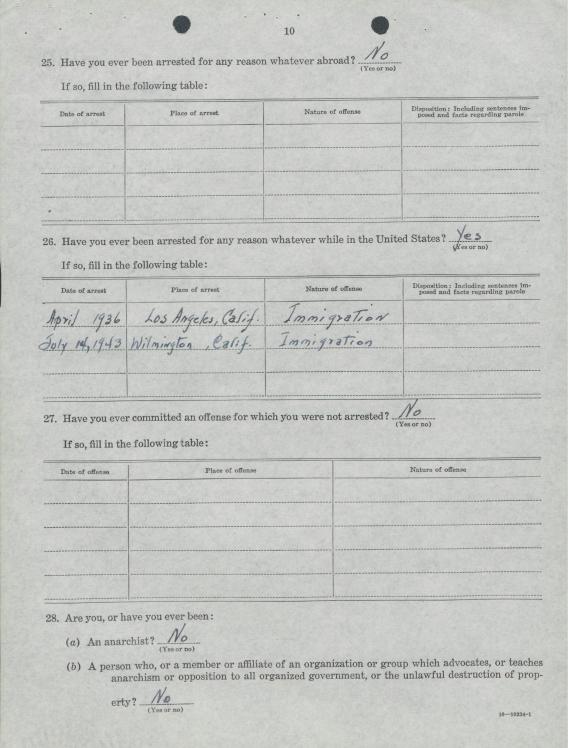 10
25. Have you ever been arrested for any reason whatever abroad? No
(Yes or no)
If so, fill in the following table:
Date of arrest Place of arrest Nature of offense Disposition: Including sentences im-
posed and facts regarding parole
26. Have you ever been arrested for any reason whatever while in the United States? Yes
(Yes or no)
If so, fill in the following table:
Date of arrest Place of arrest Nature of offense Disposition: Including sentences im-
posed and facts regarding parole
April 1936 Los Angeles, Calif. Immigration
July 1943 Wilmington, Calif. Immigration
27. Have you ever committed an offense for which you were not arrested? No
(Yes or no)
If so, fill in the following table:
Date of offense Place of offense Nature of offense
28. Are you, or have you ever been:
(a) An anarchist? No
(Yes or no)
(b) A person who, or a member or affiliate of an organization or group which advocates, or teaches
anarchism or opposition to all organized government, or the unlawful destruction of prop-
erty? No
(Yes or no)